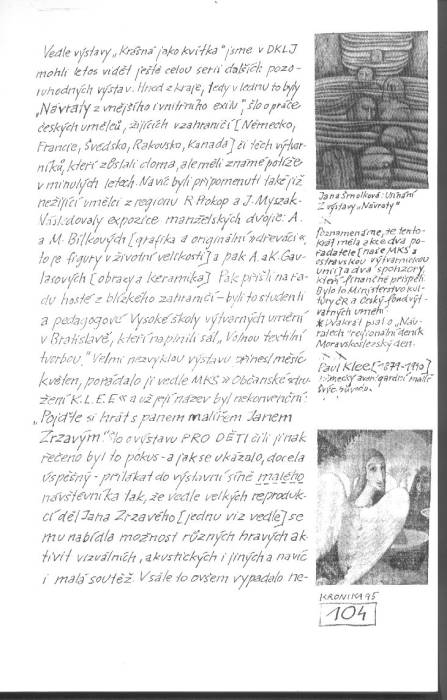 Vedle výstavy „Krásná jako kvítka" jsme v DKLJ
mohli letos vidět ještě celou serii dalších pozo-
ruhodných výstav. Hned z kraje, tedy v lednu to byly
„Návraty z vnějšího i vnitřního exilu", šlo o práce
českých umělců, žijících v zahraničí [Německo,
Francie, Švédsko, Rakousko, Kanada] či těch výtvar-
níků, kteří zůstali doma, ale měli známé potíže
v minulých letech. Navíc byli připomenuti také již
nežijící umělci z regionu R. Prokop a J. Myszak.
Následovaly expozice manželských dvojic: A.
a M. Bílkových [grafika a originální »dřeváci«,
to je figury v životní velikosti] a pak A. a K. Gav-
lasových [obrazy a keramika]. Pak přišli na řa-
du hosté z blízkého zahraničí – byli to studenti
a pedagogové Vysoké školy výtvarných umění
v Bratislavě, kteří naplnili sál „Volnou textilní
tvorbou." Velmi nezvyklou výstavu přinesl měsíc
květen, pořádalo ji vedle MKS » Občanské sdru-
žení K.L.E.E « a už její název byl nekonvenční:
„Pojďte si hrát s panem malířem Janem
Zrzavým" šlo o výstavu PRO DĚTI čili jinak
řečeno byl to pokus – a jak se ukázalo, docela
úspěšný – přilákat do výstavní síně malého
návštěvníka tak, že vedle velkých reproduk-
cí děl Jana Zrzavého [jednu viz vedle] se
mu nabídla možnost různých hravých ak-
tivit vizuálních, akustických i jiných a navíc
i malá soutěž. V sále to ovšem vypadalo ne-
Jana Šmolková:
Z výstavy „Návraty"
Poznamenejme, že tento-
krát měla akce dva po-
řadatele [naše MKS a
ostravskou výtvarnickou
unii] a dva sponzory,
kteří finančně přispěli.
Bylo to Ministerstvo kul-
tury ČR a Český fond výt-
varných umění.
psal o „Náv-
ratech" regionální deník
Moravskoslezský den.
Paul Klee [1879-1940]
německý avantgardní malíř
švýc. původu.
KRONIKA 95
104